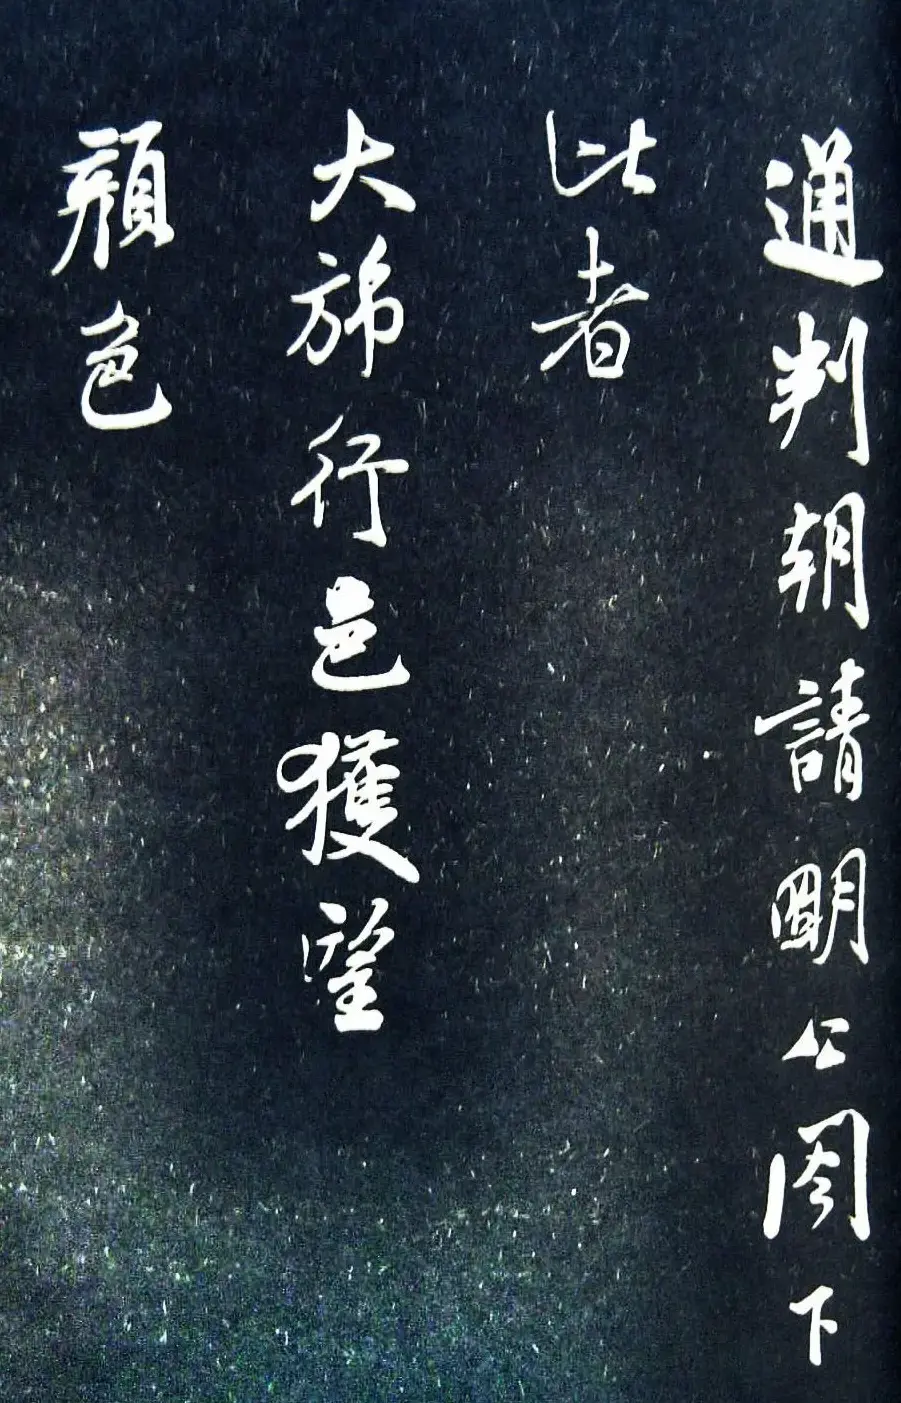 通判朝請明公閣下
此者
大旆行邑獲望
顏色